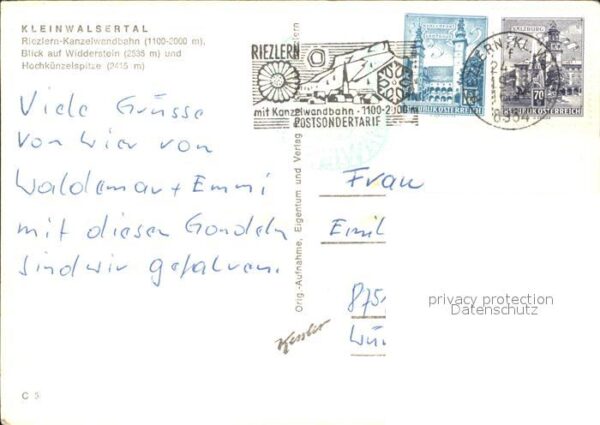 KLEINWALSERTAL
Riezlern-Kanzelwandbahn (1100-2000 m),
Blick auf Widderstein (2535 m) und
Hochkünzelspitze (2415 m)
RIEZLERN
mit Kanzelwandbahn · 1100-2000 m
POSTSONDERTARIF
REPUBLIK ÖSTERREICH
SALZBURG
70
REPUBLIK ÖSTERREICH
Viele Grüsse
von hier von
Waldemar + Emmi
mit diesen Gondeln
sind wir gefahren.
Orig.-Aufnahme, Eigentum und Verlag
Kessler
Frau
Emil
875
Wü
privacy protection
Datenschutz
C 5